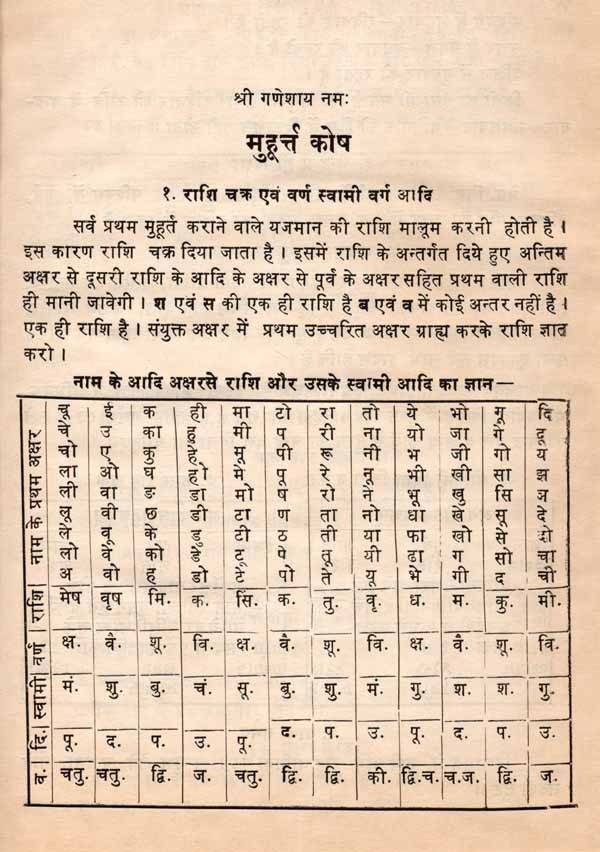 श्री गणेशाय नमः
मुहूर्त्त कोष
१. राशि चक्र एवं वर्ण स्वामी वर्ग आदि
सर्व प्रथम मुहूर्त कराने वाले यजमान की राशि मालूम करनी होती है ।
इस कारण राशि चक्र दिया जाता है । इसमें राशि के अन्तर्गत दिये हुए अन्तिम
अक्षर से दूसरी राशि के आदि के अक्षर से पूर्व के अक्षर सहित प्रथम वाली राशि
ही मानी जावेगी । श एवं स की एक ही राशि है ब एवं व में कोई अन्तर नहीं है ।
एक ही राशि है । संयुक्त अक्षर में प्रथम उच्चरित अक्षर ग्राह्य करके राशि ज्ञात
करो ।
नाम के आदि अक्षरसे राशि और उसके स्वामी आदि का ज्ञान—
नाम के प्रथम अक्षर
चू ई क ही मा टो रा तो ये भो गू दि
चे उ का हू मी प री ना यो जा गे दू
चो ए कु हे मू पी रू नी भ जी गो य
ला ओ घ हो मे पू रे नू भी खी सा झ
ली वा ङ डा मो ष रो ने भू खु सि ञ
लू वी छ डी टा ण ता नो धा खे सू दे
ले वू के डु टी ठ ती या फा खो से दो
लो वे को डे टू पे तू यी ढा ग सो चा
अ वो ह डो टे पो ते यू भे गी द ची
राशि मेष वृष मि. क. सिं. क. तु. वृ. ध. म. कु. मी.
वर्ण क्ष. वै. शू. वि. क्ष. वै. शू. वि. क्ष. वै. शू. वि.
स्वामी मं. शु. बु. चं. सू. बु. शु. मं. गु. श. श. गु.
दि. पू. द. प. उ. पू. द. प. उ. पू. द. प. उ.
व. चतु. चतु. द्वि. ज. चतु. द्वि. द्वि. की. द्वि.च. च.ज. द्वि. ज.